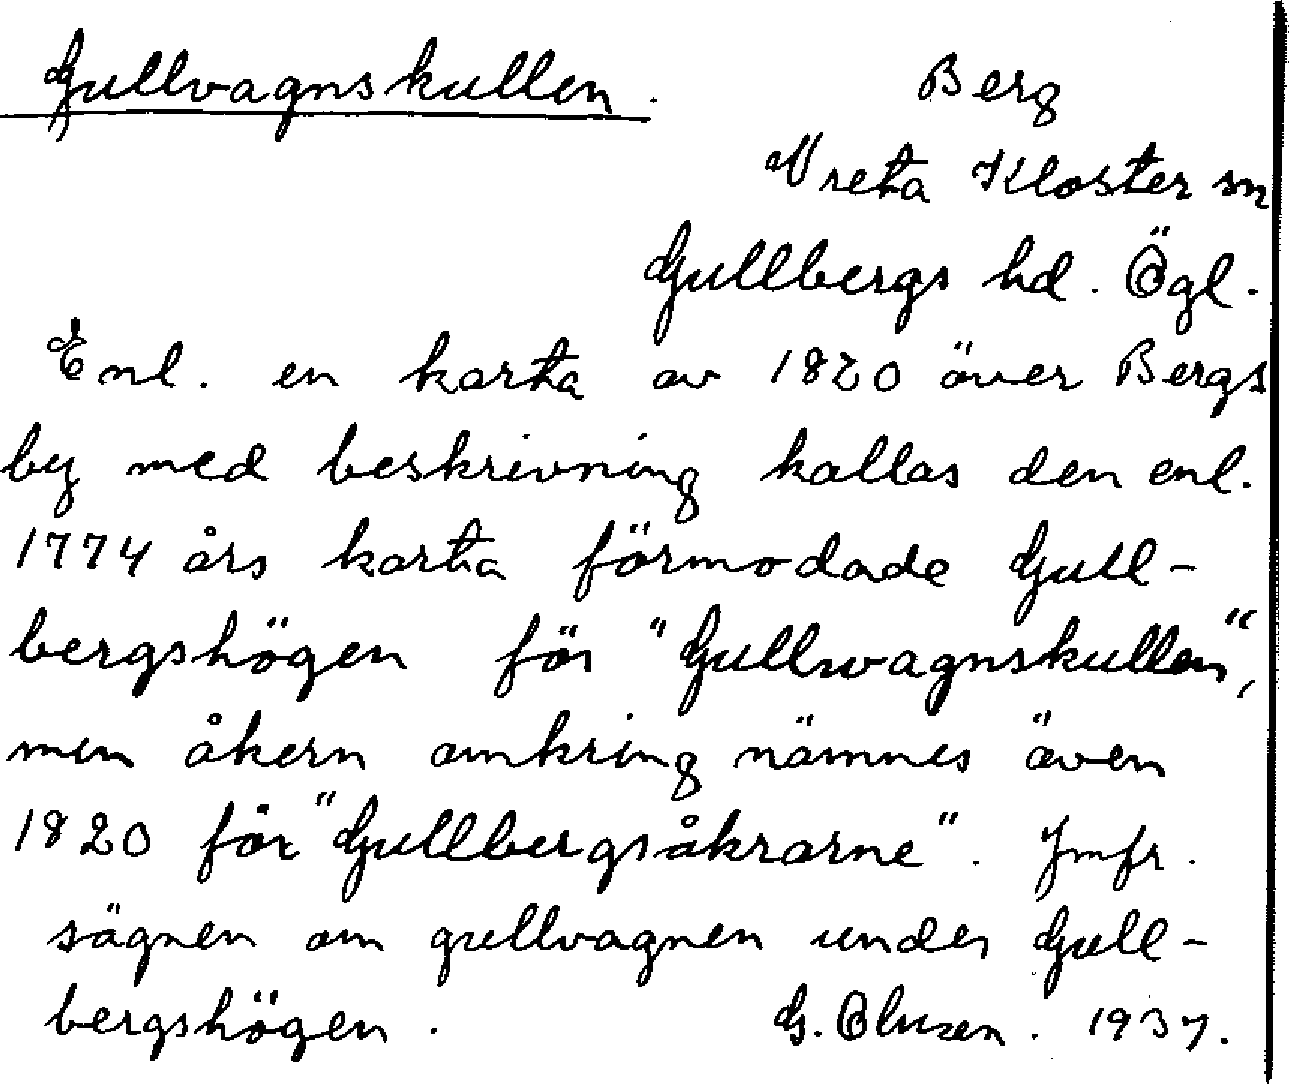 Gullvagnskullen.
Berg
Vreta Kloster sn
Gullbergs hd. Ögl.
Enl. en karta av 1820 över Bergs
by med beskrivning kallas den enl.
1774 års karta förmodade Gull-
bergshögen för "Gullwagnskullen",
men åkern omkring nämnes även
1820 för "Gullbergsåkrarne". Jmfr.
sägnen om gullvagnen under Gull-
bergshögen. G. Olusen. 1937.